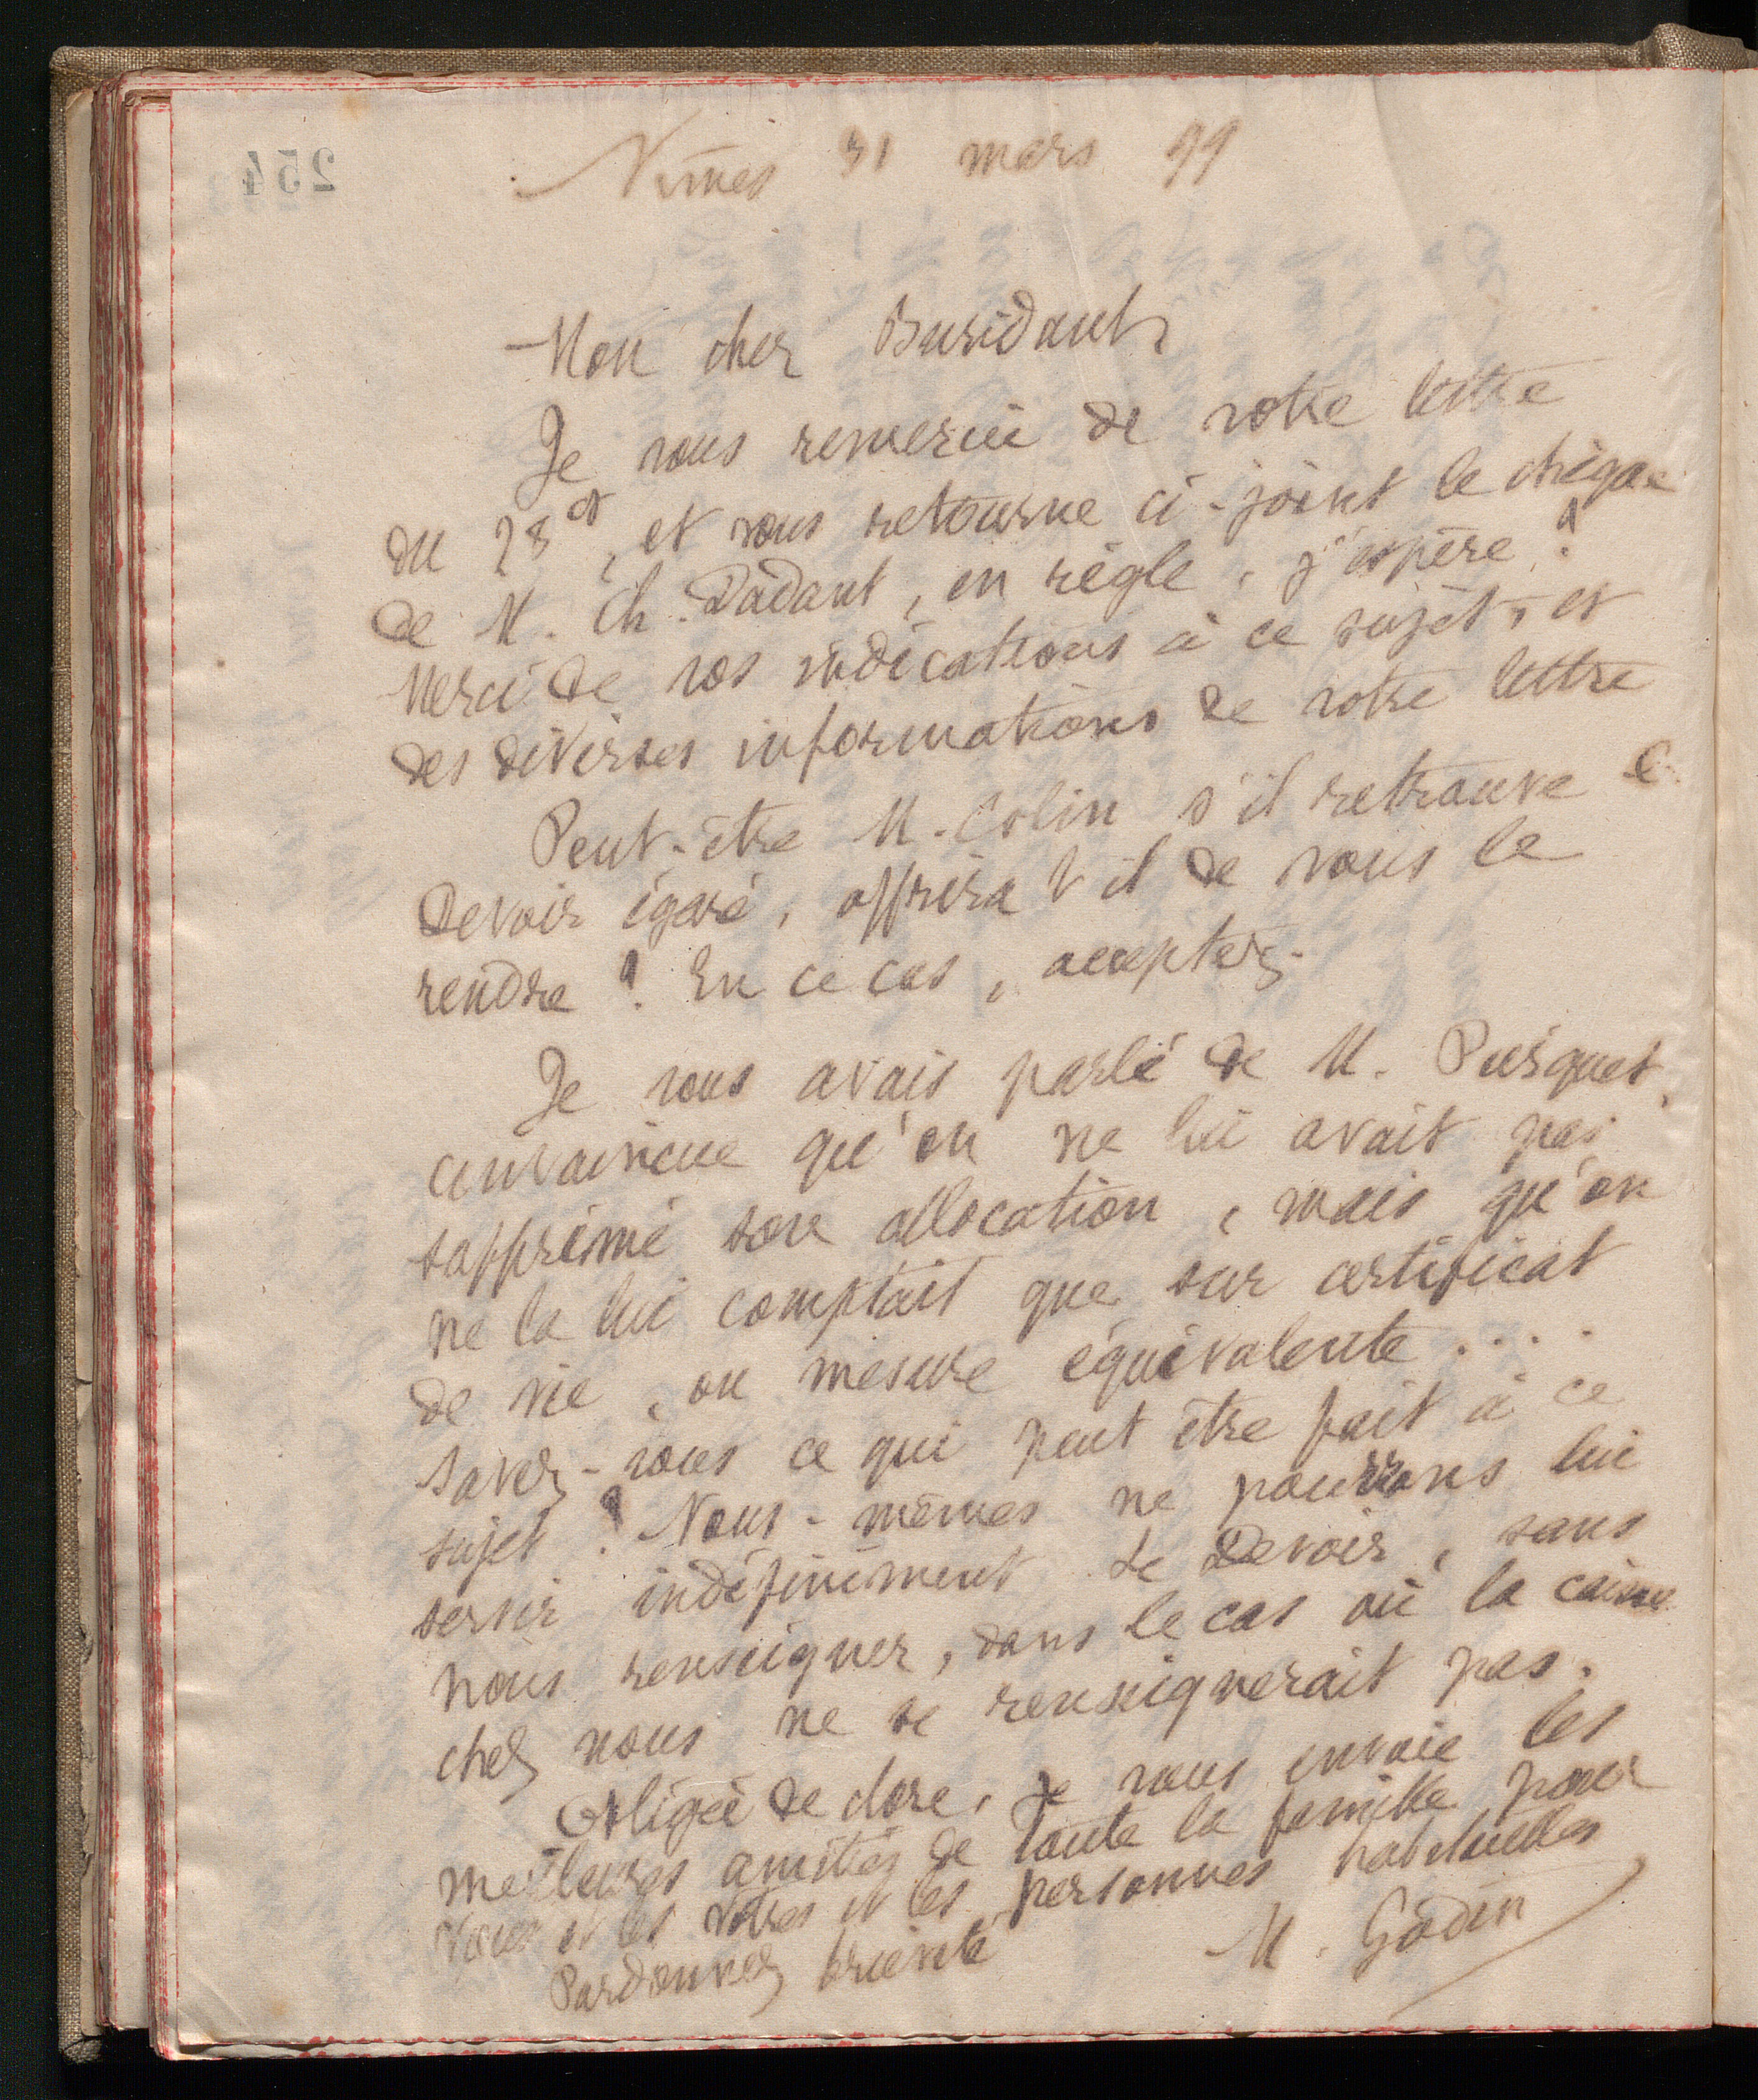 254
Nîmes 31 mars 99
Mon cher Buridant,
Je vous remercie de votre lettre
du 28 ct, et vous retourne ci-joint le chèque
de M. Ch. Dadant, en règle, j'espère ?
Merci de vos indications à ce sujet, et
des diverses informations de votre lettre
Peut-être M. Colin s'il retrouve le
Devoir égaré, offrira t il de vous le
rendre ? En ce cas, acceptez.
Je vous avais parlé de M. Purquet,
convaincue qu'on ne lui avait pas
supprimé son allocation, mais qu'on
ne la lui comptait que sur certificat
de vie, ou mesure équivalente....
Savez-vous ce qui peut être fait à ce
sujet ? Nous-mêmes ne pourrons lui
servir indéfiniment Le Devoir, sans
nous renseigner, dans le cas où la caisse
chez nous ne se renseignerait pas.
Obligée de clore, je vous envoie les
meilleures amitiés de toute la famille pour
vous et les vôtres et les personnes habituelles
Pardonnez brièveté
M. Godin